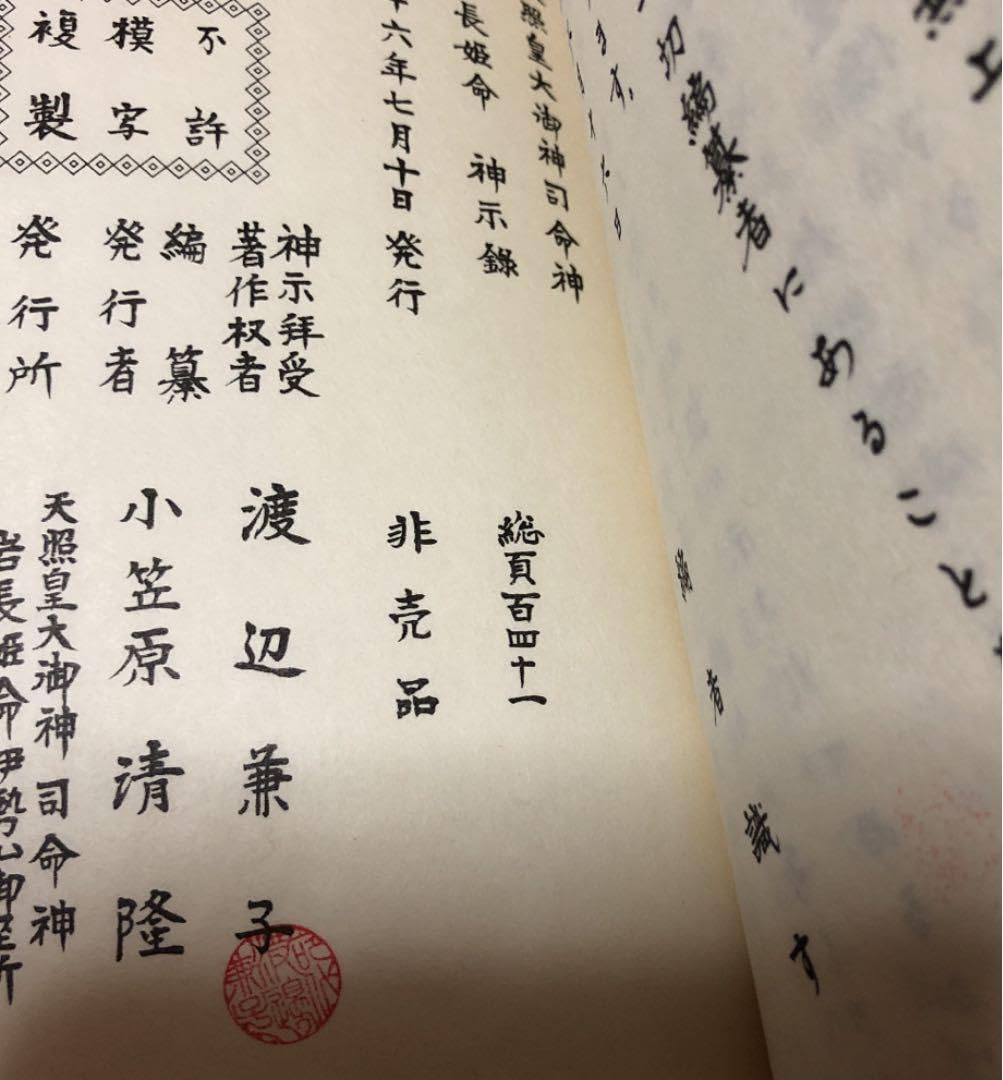 切編纂者にあること
編者識す
照皇大御神司命神
長姫命 神示錄
総頁百四十一
六年七月十日発行
非売品
神示拝受
著作权者
渡辺兼子
編纂
発行者
小笠原清隆
発行所
天照皇大御神司命神
岩長姫命伊勢山御
不許
模写
複製